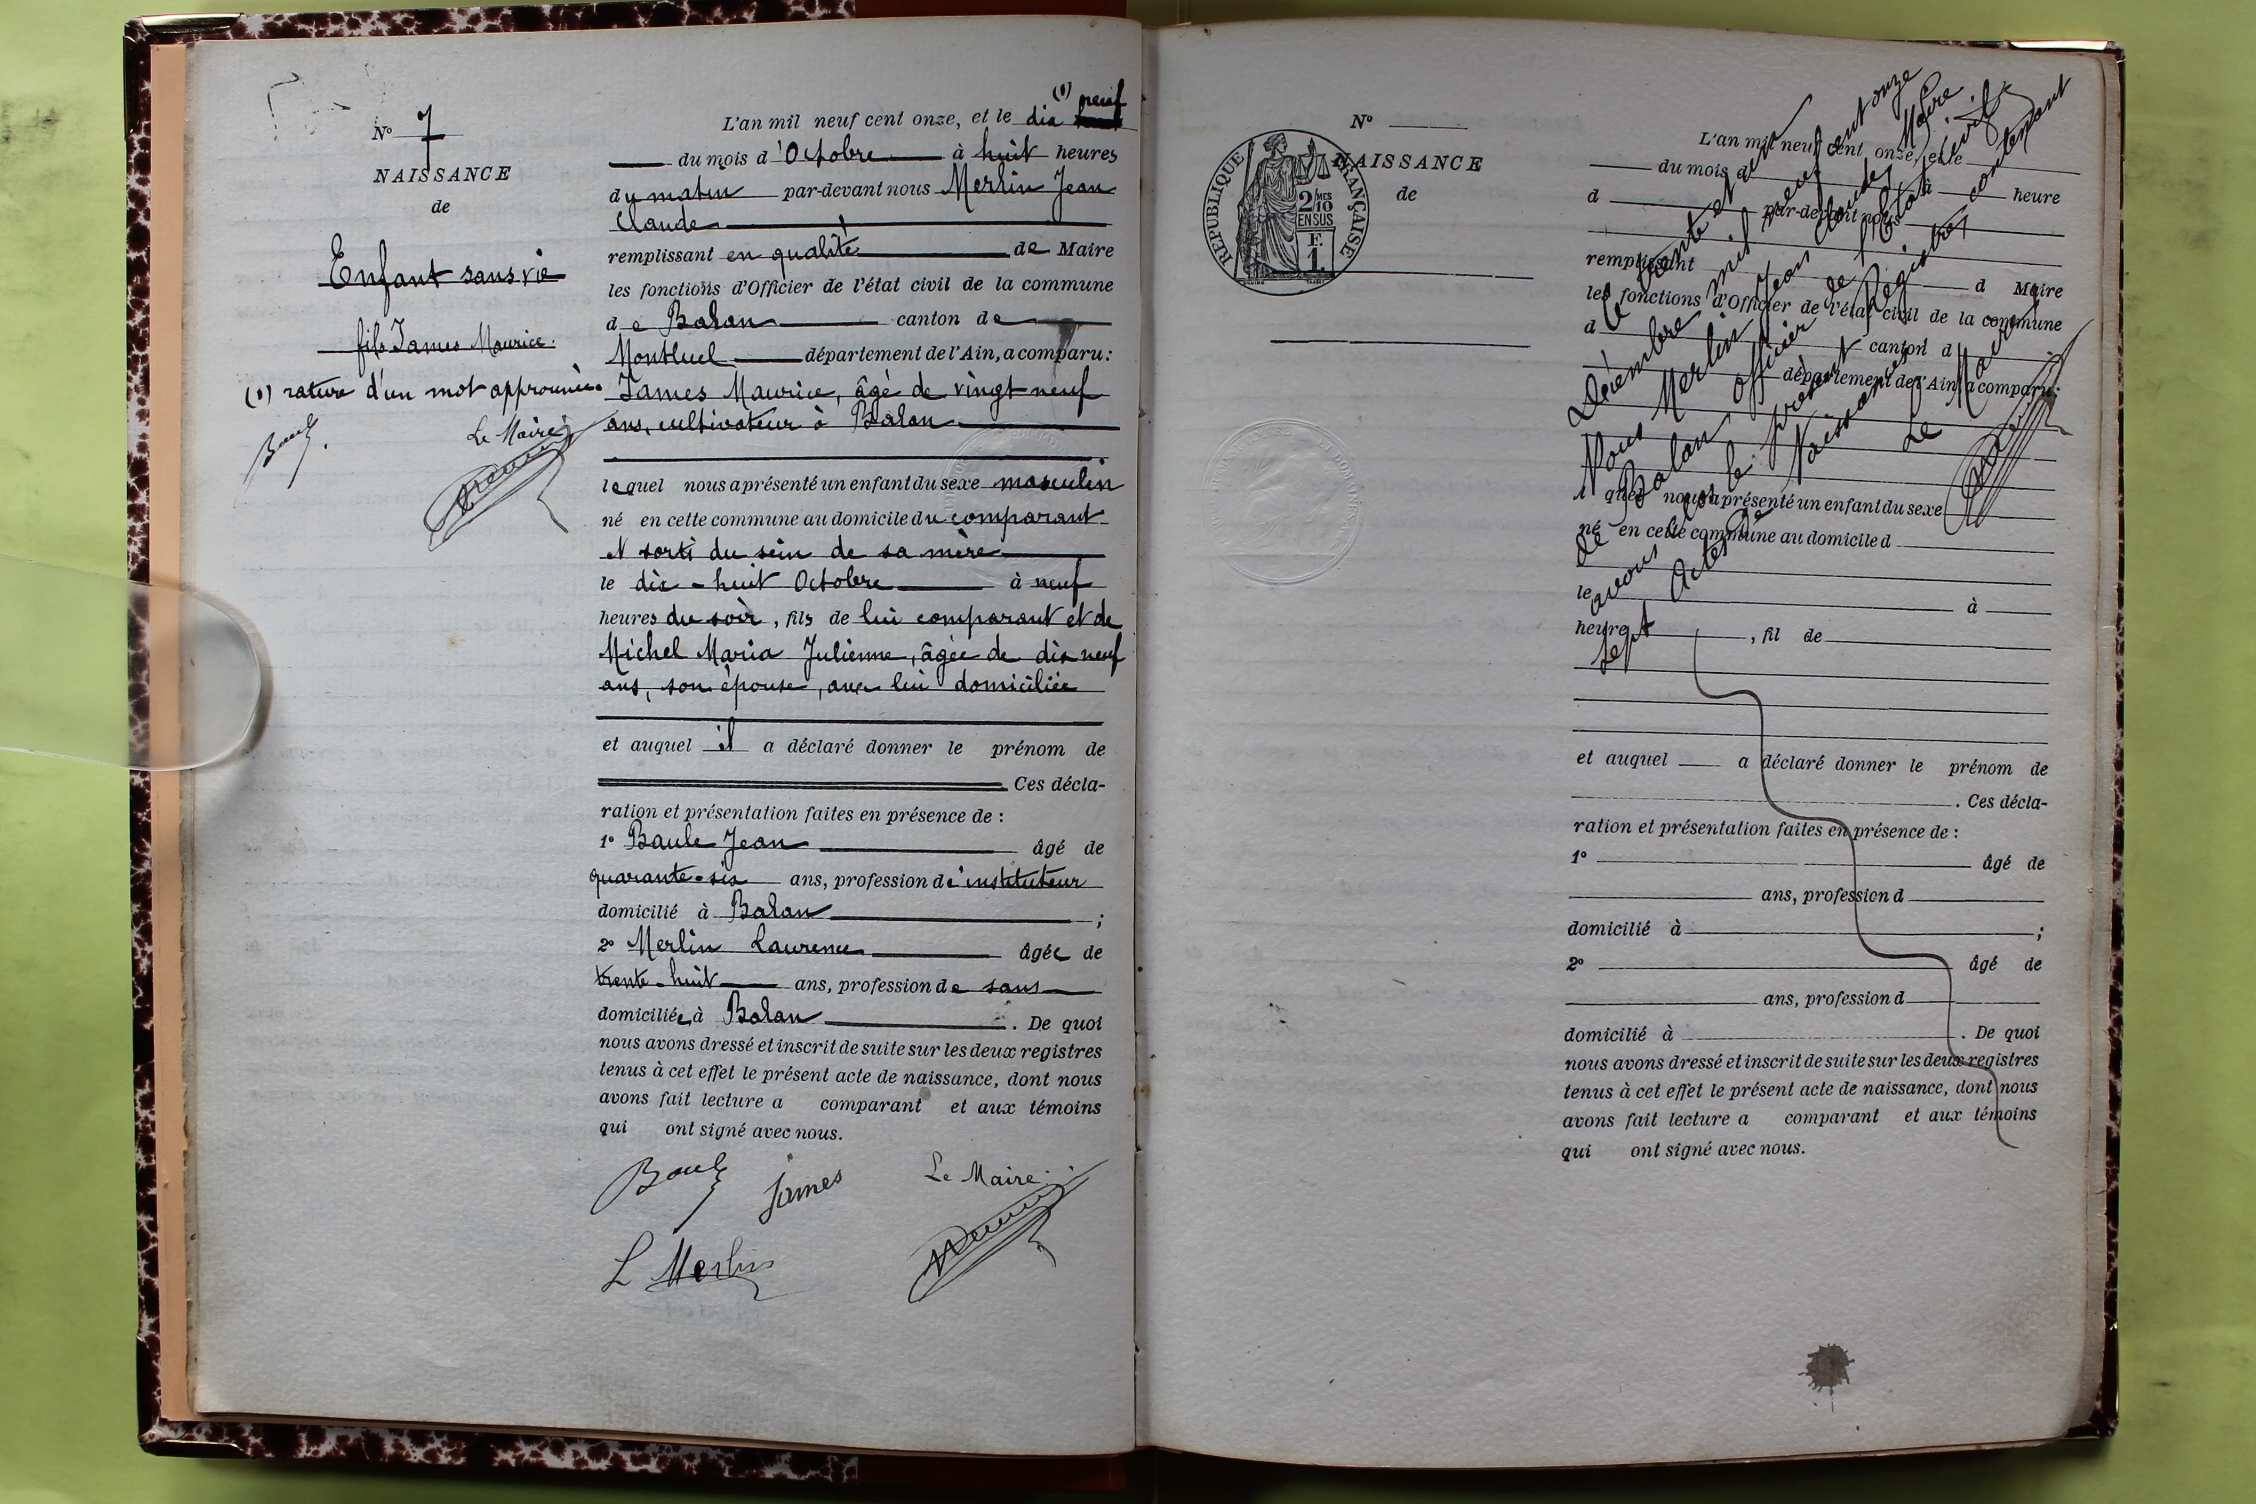 N° 7
NAISSANCE
de
Enfant sans vie
fils James Maurice.
(1) rature d'un mot approuvée.
Le Maire
(1) neuf
L'an mil neuf cent onze, et le dix
du mois d'Octobre à huit heures
du matin par-devant nous Merlin Jean
Claude
remplissant en qualité de Maire
les fonctions d'Officier de l'état civil de la commune
de Balan canton de
Montluel département de l'Ain, a comparu:
James Maurice, âgé de vingt-neuf
ans, cultivateur à Balan
lequel nous a présenté un enfant du sexe masculin
né en cette commune au domicile du comparant
et sorti du sein de sa mère
le dix-huit Octobre à neuf
heures du soir, fils de lui comparant et de
Michel Maria Julienne, âgée de dix neuf
ans, son épouse, avec lui domiciliée
et auquel il a déclaré donner le prénom de
Ces décla-
ration et présentation faites en présence de :
1° Baule Jean âgé de
quarante-six ans, profession d'instituteur
domicilié à Balan ;
2° Merlin Laurence âgée de
trente-huit ans, profession de sans
domiciliée à Balan . De quoi
nous avons dressé et inscrit de suite sur les deux registres
tenus à cet effet le présent acte de naissance, dont nous
avons fait lecture a comparant et aux témoins
qui ont signé avec nous.
Baule James Le Maire
L Merlin
N°
NAISSANCE
de
RÉPUBLIQUE FRANÇAISE
2 MES
10
EN SUS
F.
1
L'an mil neuf cent onze, et le
du mois d à heure
d par-devant nous
remplissant d Maire
les fonctions d'Officier de l'état civil de la commune
d canton d
département de l'Ain, a comparu:
l quel nous a présenté un enfant du sexe
né en cette commune au domicile d
le à
heure , fil de
et auquel a déclaré donner le prénom de
. Ces décla-
ration et présentation faites en présence de :
1° âgé de
ans, profession d
domicilié à ;
2° âgé de
ans, profession d
domicilié à . De quoi
nous avons dressé et inscrit de suite sur les deux registres
tenus à cet effet le présent acte de naissance, dont nous
avons fait lecture a comparant et aux témoins
qui ont signé avec nous.
Ce trente et un
Décembre mil neuf cent onze
Nous Merlin Jean Claude, Maire
de Balan officier de l'Etat civil
avons clos le présent Registre contenant
sept Actes de Naissances
Le Maire